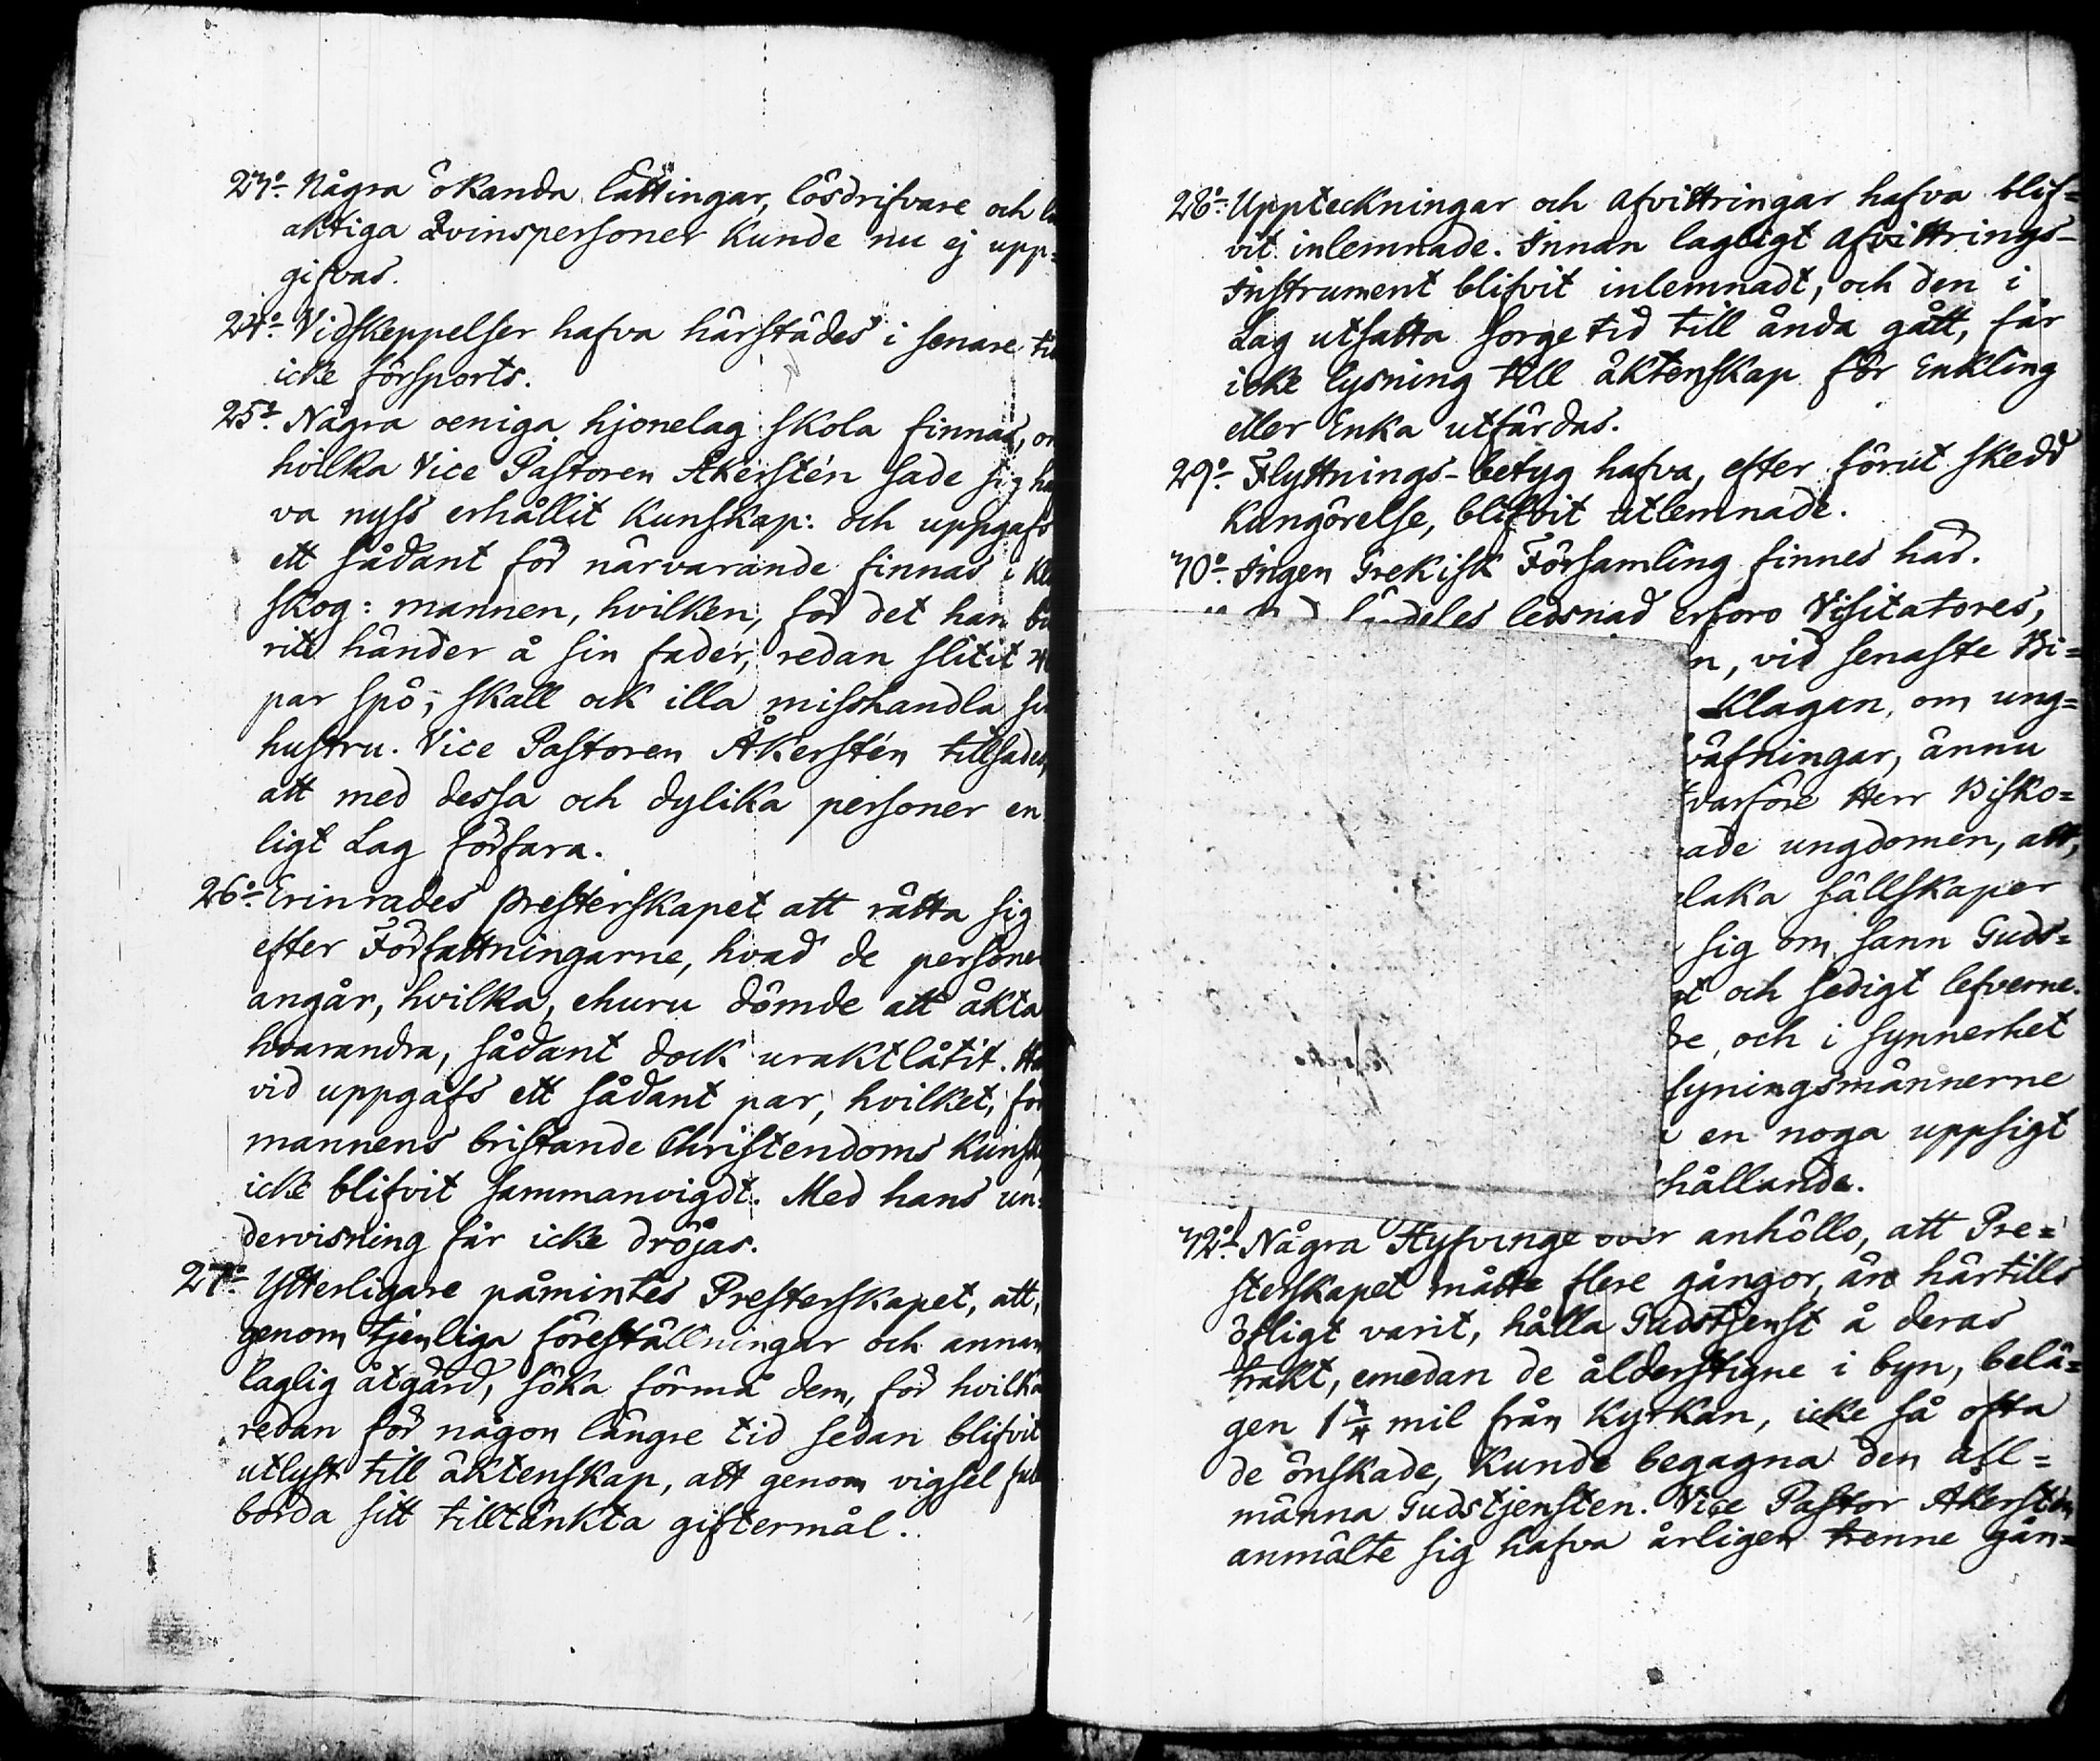 23º Några ökända lättingar, lösdrifvare och
aktiga qvinspersoner kunde nu ej upp=
gifvas.
24º Vidskeppelser hafva härstädes i senare
icke försports.
25º Några oeniga hjonelag skola finnas,
hvilka Vice Pastoren Åkerstén sade sig
va nyss erhållit kunskap: och uppgafs
ett sådant för närvarande finnas i
skog: mannen, hvilken, för det han
rit händer å sin fader, redan slitit
par spö, skall ock illa misshandla
hustru. Vice Pastoren Åkerstén tillsades,
att med dessa och dylika personer en
ligt Lag förfara.
26º Erinrades Presterskapet att rätta sig
efter Författningarne, hvad de persone
angår, hvilka, ehuru dömde att äkta
hvarandra, sådant dock uraktlåtit.
vid uppgafs ett sådant par, hvilket, för
mannens bristande Christendoms kunsk
icke blifvit sammanvigdt. Med hans un=
dervisning får icke dröjas.
27º Ytterligare påmintes Presterskapet, att,
genom tjenliga föreställningar och annan
laglig åtgärd, söka förmå dem, för hvilka
redan för någon längre tid sedan blifvit
utlyst till äktenskap, att genom vigsel
borda sitt tilltänkta giftermål.
28º Uppteckningar och afvittringar hafva blif=
vit inlemnade. Innan lagligt afvittrings-
instrument blifvit inlemnadt, och den i
Lag utsatta sorgetid till ända gått, får
icke lysning till äktenskap för Enkling
eller Enka utfärdas.
29º Flyttnings-betyg hafva, efter förut skedd
kungörelse, blifvit utlemnade.
30º Ingen Grekisk Församling finnes här.
ledsnad erforo Visitatores,
n, vid senaste Vi=
klagan, om ung=
svärfningar, ännu
hvarföre Herr Bisko=
ade ungdomen, att,
elaka sällskaper
sig om sann Guds=
t och sedigt lefverne.
de, och i synnerhet
syningsmännerne
en noga uppsigt
hållande.
32º Några Hyfvinge boer anhöllo, att Pre=
sterskapet måtte flere gångor, än härtills
öfligt varit, hålla Gudstjenst å deras
trakt, emedan de ålderstigne i byn, belä=
gen 1¾ mil från Kyrkan, icke så ofta
de önskade, kunde begagna den all=
männa Gudstjensten. Vice Pastor Åkerstén
anmälte sig hafva årligen trenne gån=